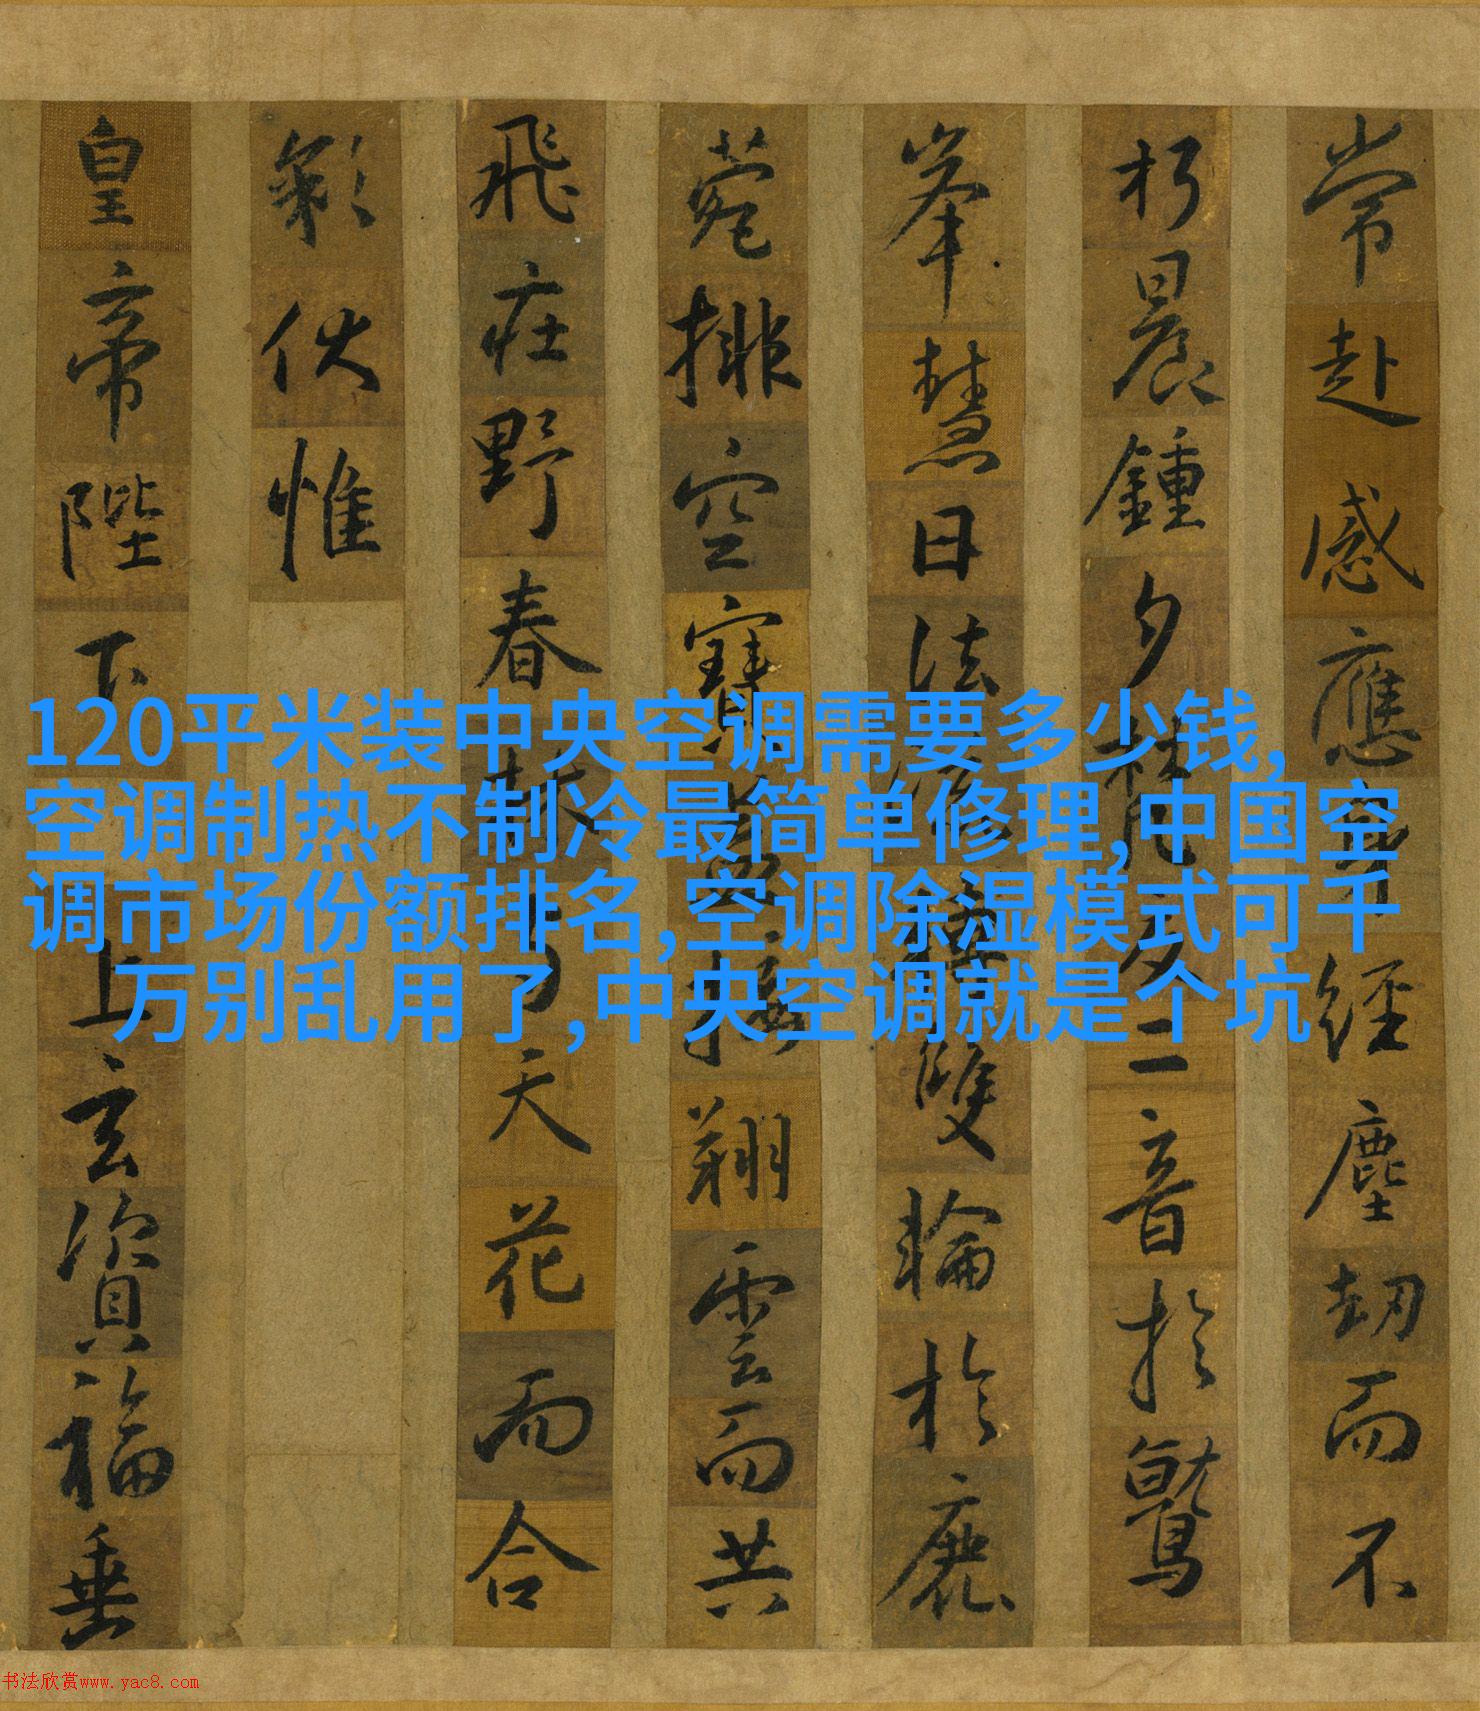 常赴感應 經塵劫而不
朽晨鍾夕梵 二音於鷲
峯慧日法 雙輪於鹿
菀排空寶 接翔雲而共
飛莊野春林与天花而合
彩伏惟
皇帝陛下上玄資福垂
120平米装中央空调需要多少钱,
空调制热不制冷最简单修理,中国空
调市场份额排名,空调除湿模式可千
万别乱用了,中央空调就是个坑
书法欣赏www.yac8.com